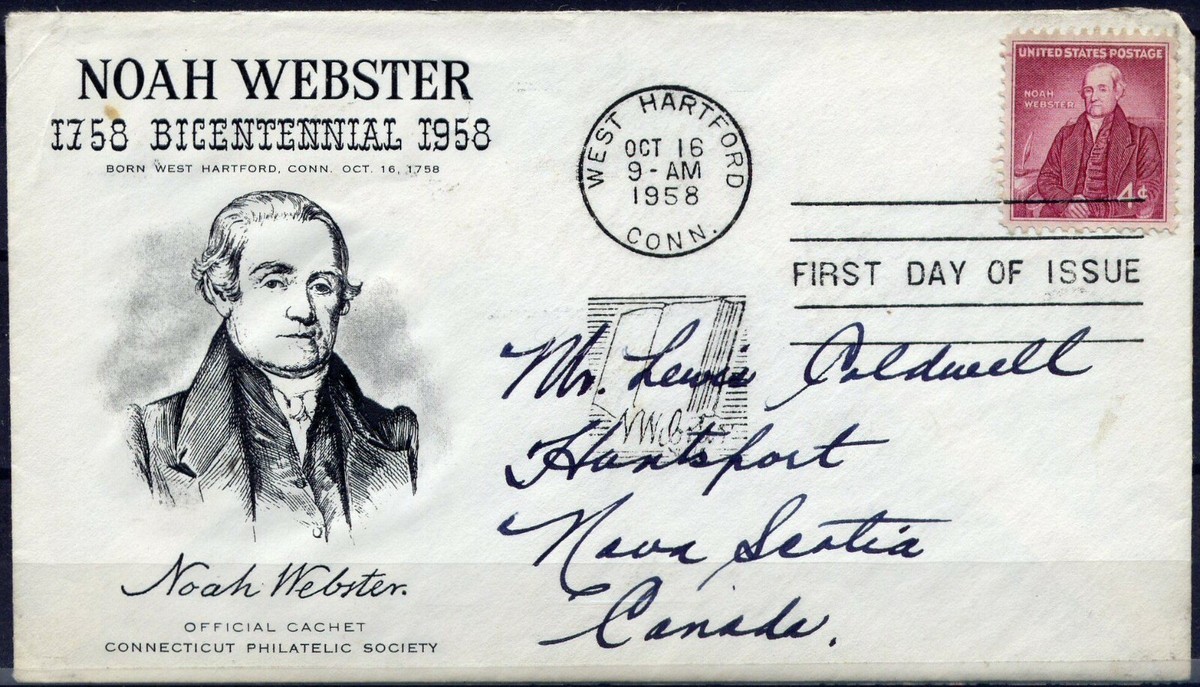 NOAH WEBSTER
1758 BICENTENNIAL 1958
BORN WEST HARTFORD, CONN. OCT. 16, 1758
Noah Webster.
OFFICIAL CACHET
CONNECTICUT PHILATELIC SOCIETY
WEST HARTFORD
OCT 16
9 - AM
1958
CONN.
UNITED STATES POSTAGE
NOAH
WEBSTER
4¢
FIRST DAY OF ISSUE
Mr. Lewis Coldwell
Hantsport
Nova Scotia
Canada.